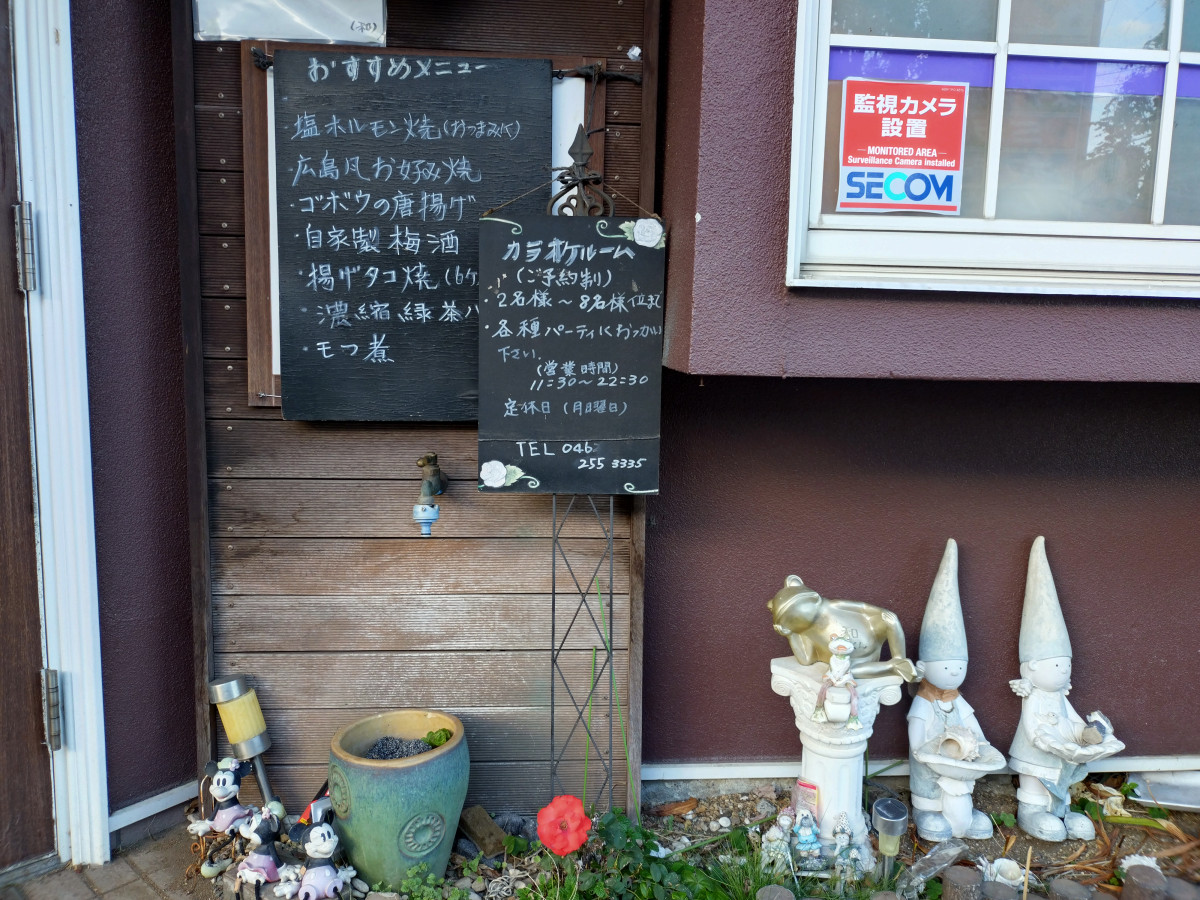 (和)
おすすめメニュー
塩ホルモン焼(おつまみに)
・広島風お好み焼
・ゴボウの唐揚げ
・自家製梅酒
・揚げタコ焼(6ケ
・濃縮緑茶ハ
・モツ煮
カラオケルーム
(ご予約制)
・2名様～8名様位まで
・各種パーティにおつかい
下さい.
(営業時間)
11:30～22:30
定休日(月曜日)
TEL 046
255 3335
監視カメラ
設置
MONITORED AREA
Surveillance Camera Installed
SECOM